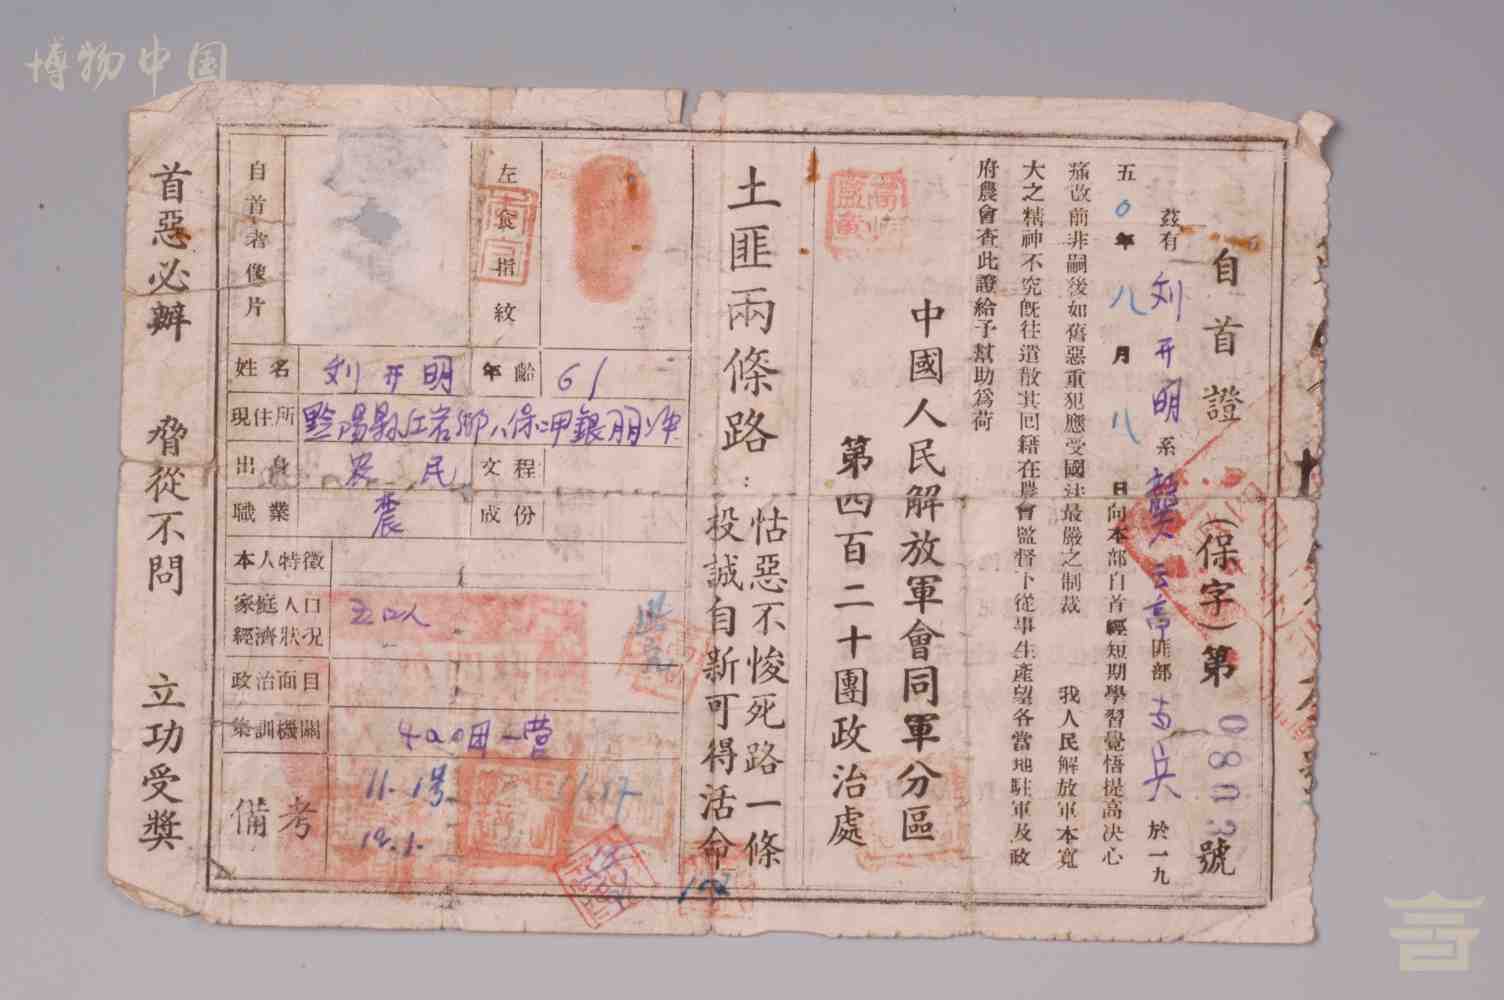 博物中国
自首證 (保字)第08803號
茲有刘开明系龔云高匪部吉兵於一九
五0年八月八日向本部自首經短期學習覺悟提高决心
痛改前非嗣後如舊惡重犯應受國法最嚴之制裁 我人民解放軍本寬
大之精神不究既往遣散其回籍在農會監督下從事生產望各當地駐軍及政
府農會查此證給予幫助為荷
中國人民解放軍會同軍分區
第四百二十團政治處
土匪兩條路：
怙惡不悛死路一條
投誠自新可得活命
左食指紋
自首者像片
姓名 刘开明 年齡 61
現住所 黔陽縣江岩鄉八保
出身 农民 文程
職業 農 成份
本人特徵
家庭人口經濟狀况 五口人
政治面目
集訓機關 420团一营
備考 11.1号
12.1.
11.17
首惡必辦 脅從不問 立功受獎